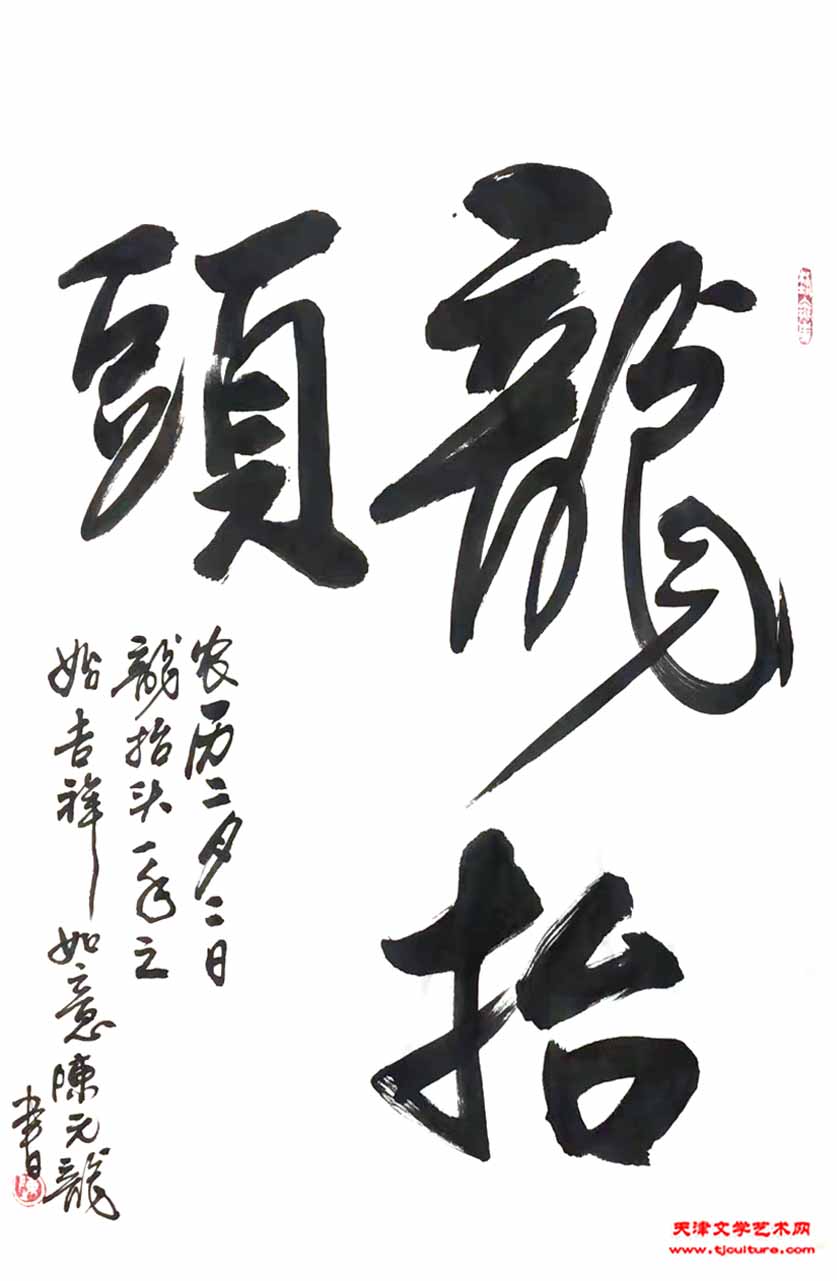 龍抬
頭
农历二月二日
龍抬头一年之
始吉祥如意陳元龍
書
天津文学艺术网
www.tjculture.com